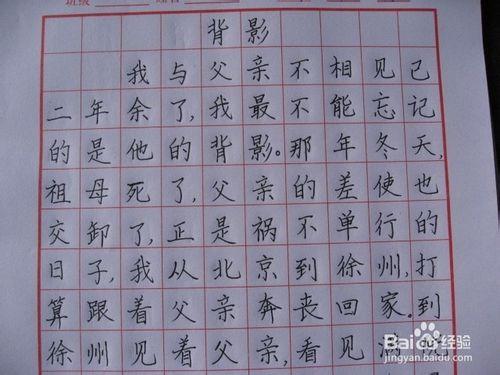 班级 姓名
背影
我与父亲不相见已
二年余了,我最不能忘记
的是他的背影。那年冬天,
祖母死了,父亲的差使也
交卸了,正是祸不单行的
日子,我从北京到徐州,打
算跟着父亲奔丧回家。到
徐州见着父亲,看见满院
Baidu经验
jingyan.baidu.com